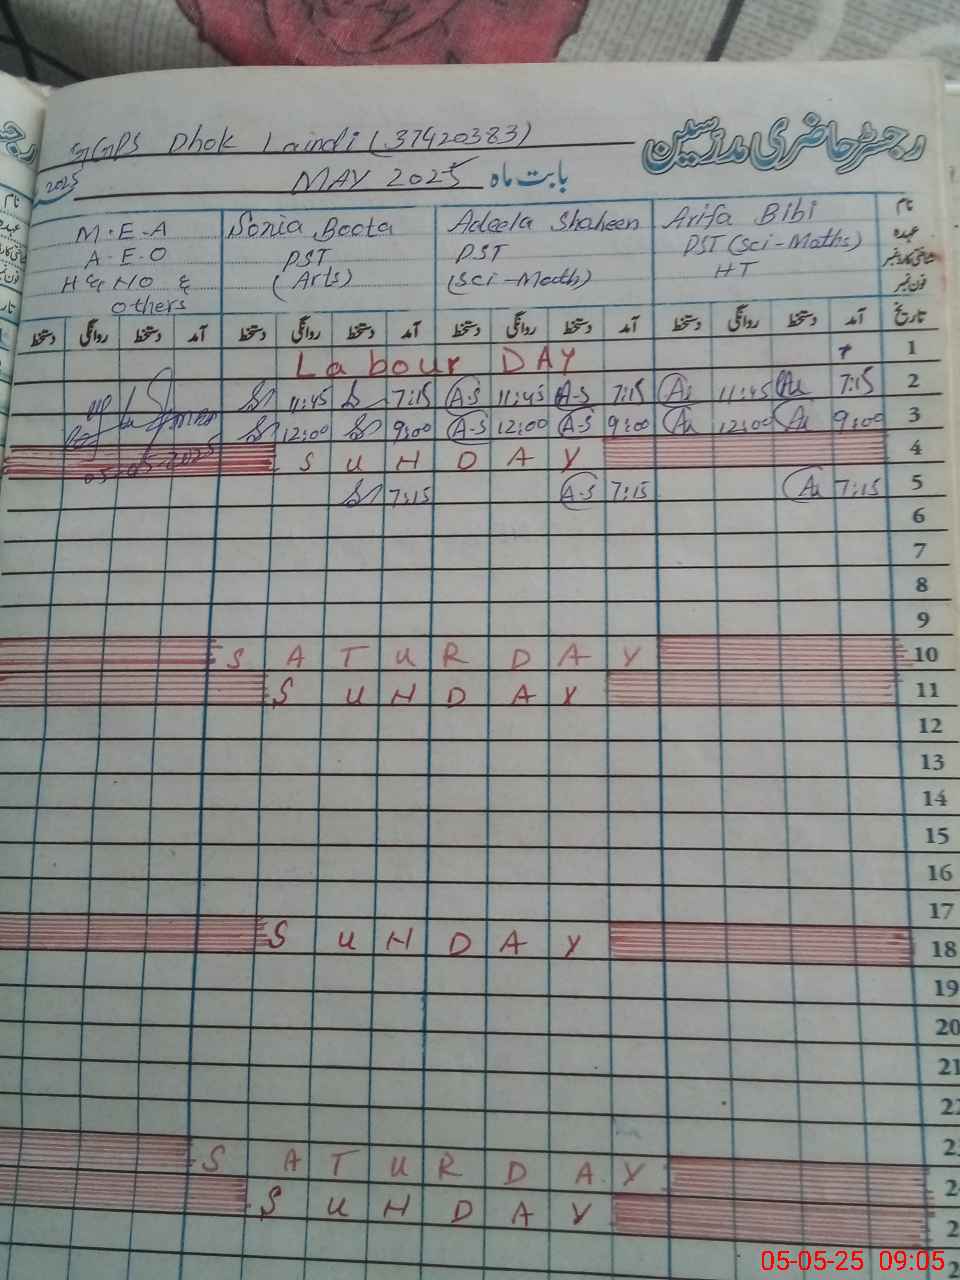 رجسٹر حاضری مدرسین
GGPS Dhok Laindi (37420383)
بابت ماہ MAY 2025
2025
نام Arifa Bibi Adeela Shaheen Sonia Boota M.E.A
عہدہ PST (Sci-Maths) PST PST A.E.O
HT (Sci-Math) (Arts)
فون نمبر
others
تاریخ آمد دستخط روانگی دستخط آمد دستخط روانگی دستخط آمد دستخط روانگی دستخط آمد دستخط روانگی دستخط
1 Labour DAY
2 7:15 Au 11:45 Au 7:15 A-S 11:45 A-S 7:15 11:45
3 9:00 Au 12:00 Au 9:00 A-S 12:00 A-S 9:00 12:00
4 SUNDAY
05-05-2025
5 7:15 Au 7:15 A-S 7:15
6
7
8
9
10 SATURDAY
11 SUNDAY
12
13
14
15
16
17
18 SUNDAY
19
20
21
22
SATURDAY
SUNDAY
05-05-25 09:05